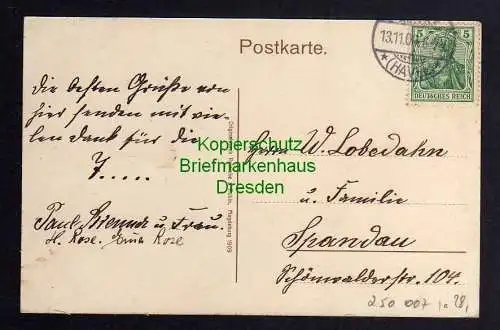 Postkarte.
13.11.0
(HAVEL)
5 5
DEUTSCHES REICH
Die besten Grüße von
hier senden mit vie-
len Dank für die
7.....
Paul u Frau.
H. Rose. Erna Rose
Magdeburg 1909
Herrn W. Lobedahn
u. Familie
Spandau
Schönwalderstr. 104.
250 007
Kopierschutz
Briefmarkenhaus
Dresden